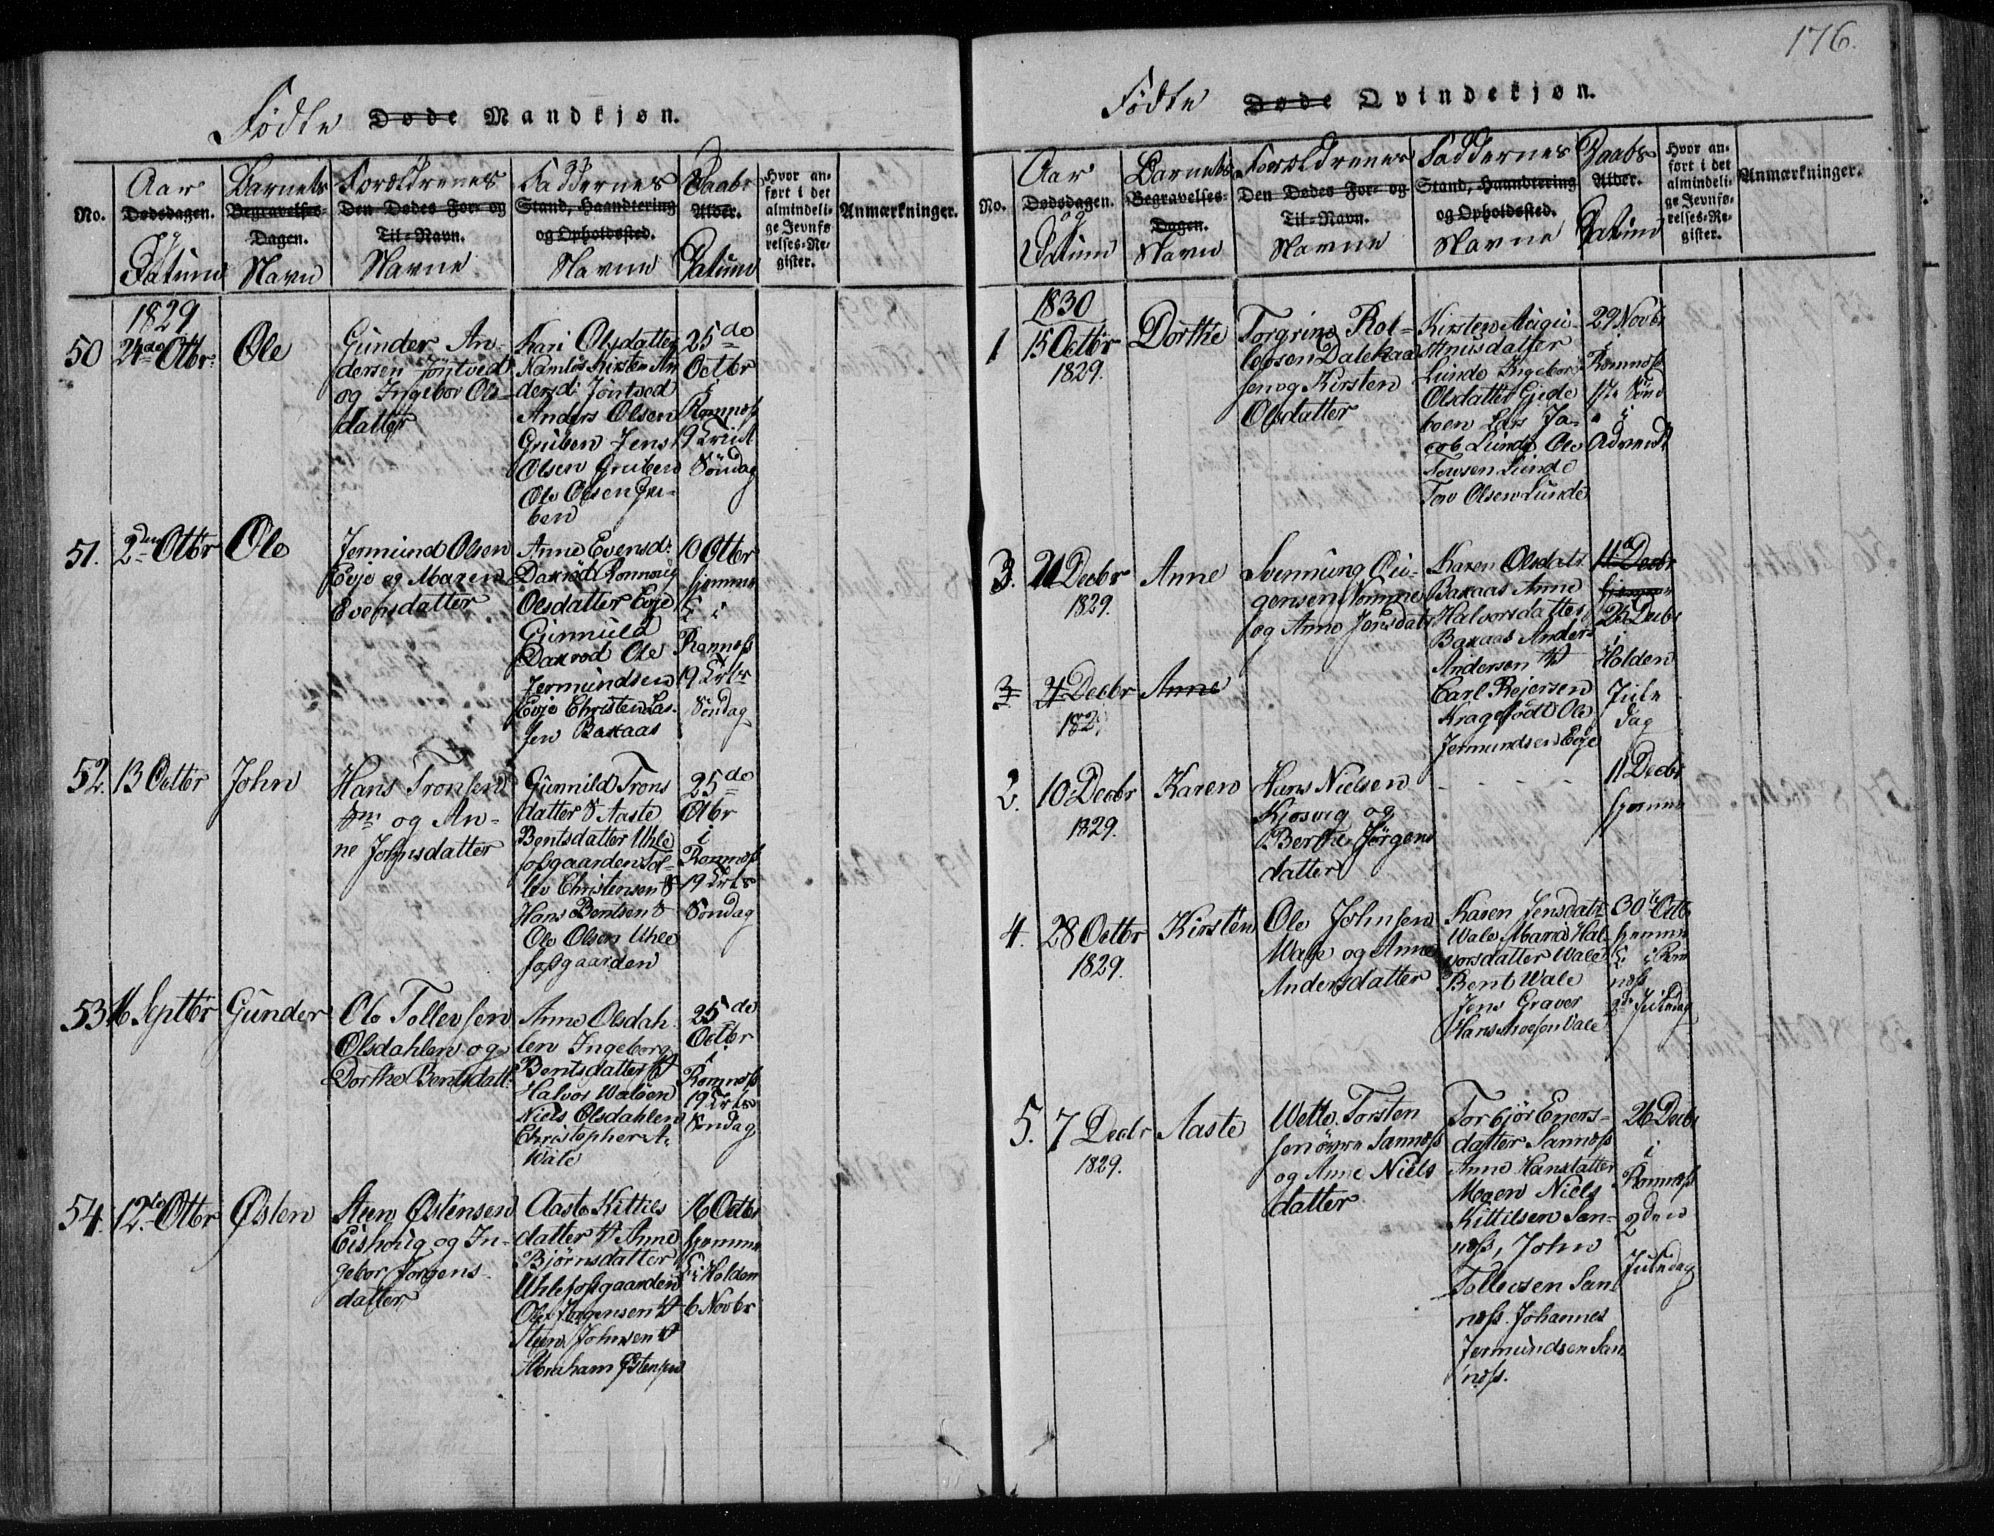 176.
Fødte Døde Mandkjøn.
No.
Aar
Dødsdagen.
og
Datum
Barnets
Begravelses-
Dagen.
Navn
Forældrenes
Den Dødes For- og
Til-Navn.
Navne
Faddernes
Stand, Haandtering
og Opholdssted.
Navne
Daabs
Alder.
Datum
Hvor an-
ført i det
almindeli-
ge Jevnfø-
relses-Re-
gister.
Anmærkninger.
1829
50
24de Otbr.
Ole
Gunder An-
dersen Jøntvedt
og Ingebor Ols-
datter
Kari Olsdatter
Namløs Kirsten An
dersd: Jøntved
Anders Olsen
Gruben Jens
Olsen Gruben
Ole Olsen Gru-
ben
25de
Octbr
i
Romnæss
19 Trinit
Søndag
51.
2den Otbr
Ole
Jermund Olsen
Evje og Maren
Evensdatter
Anne Evensd:
Daxrød Ronnoug
Olsdatter Evje
Gunnuld
Daxrød Ole
Jermundsen
Evje Christen Las-
sen Baxaas
10 Otbr
hjemme
i
Romnæss
19 Trts
Søndag
52.
13 Octbr
John
Hans Tronsen
og An-
ne Johnsdatter
Gunnild Trons
datter & Aaste
Bentsdatter Uhle
fossgaarden Tol-
lev Christensen &
Hans Bentsen &
Ole Olsen Uhle
fossgaarden
25de
Otbr
i
Romnæss
19 Trts
Søndag
53
16 Septbr
Gunder
Ole Tollevsen
Olsdahlen og
Dorthe Bentsdatt:
Anne Olsdah-
len Ingeborg
Bentsdatter &
Halvor Waløen
Niels Olsdahlen
Christopher A.
Wale
25de
Octbr
i
Romnæss
19 Trts
Søndag
54.
12te Otbr
Østen
Steen Østensen
Eishoug og In-
gebor Jørgens-
datter
Aaste Kittils
datter & Anne
Bjørnsdatter
Uhlefossgaarden
Ole Jørgensen &
Steen Johnsen &
Abraham Østensen
16 Octbr
hjemme
i Holden
6 Novbr
Fødte Døde Qvindekjøn.
No.
Aar
Dødsdagen.
og
Datum
Barnets
Begravelses-
Dagen.
Navn
Forældrenes
Den Dødes For- og
Til-Navn.
Navne
Faddernes
Stand, Haandtering
og Opholdssted.
Navne
Daabs
Alder.
Datum
Hvor an-
ført i det
almindeli-
ge Jevnfø-
relses-Re-
gister.
Anmærkninger.
1830
1
15 Octbr
1829.
Dorthe
Torgrine Rol-
lefsen Dalekaa
sen og Kirsten
Olsdatter
Kirsten Augu-
stinusdatter
Lunde Ingebor
Olsdatter Gjede
boen Lars Ja-
cob Lunde Ole
Towsen Lunde
Tov Olsen Lunde
29 Novbr
i
Romnæss
1ste Sønd
i
Advendt
3.
21 Decbr
1829.
Anne
Svennung
gensen Namme
og Anne Jensdatt
Karen Olsdatt
Baxaas Anne
Halvorsdatter
Baxaas Anders
Andersen &
Carl Rejersen
Kragefødt Ole
Jermundsen Evje
11 Decbr
hjemme
25 Decbr
i
Holden
Jule
dag
3
21 Decbr
182
Anne
2.
10 Decbr
1829.
Karen
Hans Nielsen
Kjosvig og
Berthe Jørgens
datter
11 Decbr
hjemme
4.
28 Octbr
1829.
Kirsten
Ole Johnsen
Wale og Anne
Andersdatter
Karen Jensdatt:
Wale Maria Hal-
vorsdatter Wale
Bent Wale
Jens Graver
Hans Moesen Vale
30 Octb
hjemme
i Rom
næss
2den Juledag
5.
7 Decbr
1829.
Aaste
Wetle Torsten
sen øvre Sannæss
og Anne Niels
datter
Torbjør Eners-
datter Sannæss
Anne Hansdatter
Moen Niels
Kittilsen San-
næss, John
Tollevsen San
næss. Johannes
Jermundsen San
næss.
26 Decbr
i
Romnæss
2den
Juledag